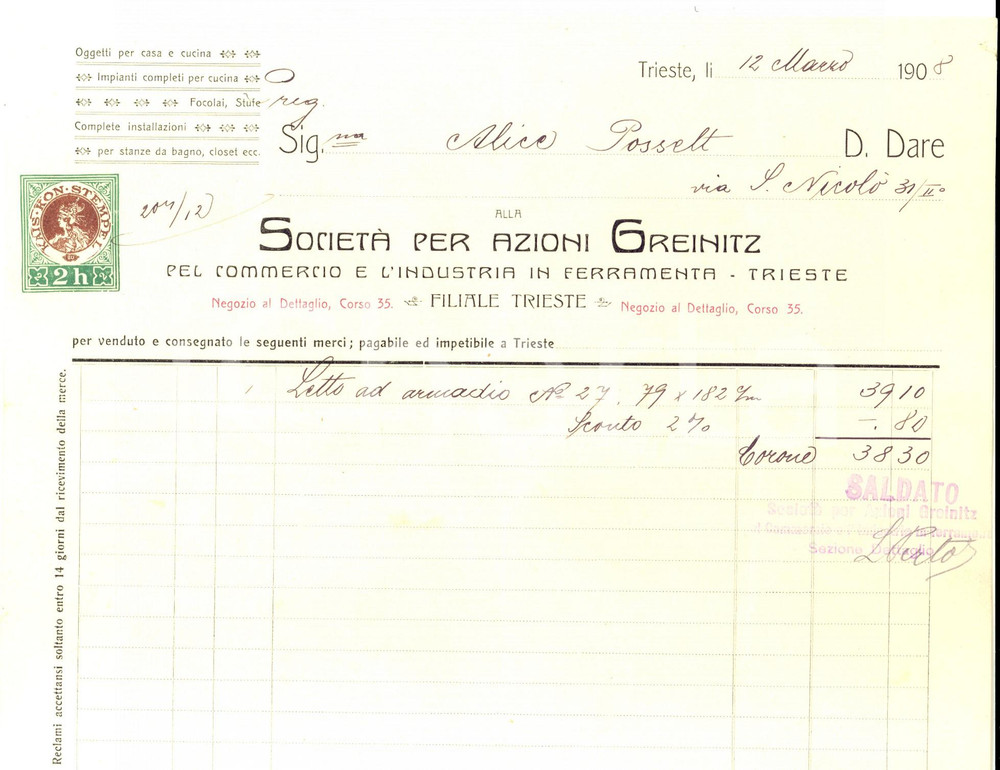 Oggetti per casa e cucina
Impianti completi per cucina
Focolai, Stufe
Complete installazioni
per stanze da bagno, closet ecc.
Trieste, li 12 Marzo 1908
reg.
Sig.na Alice Posselt D. Dare
via S. Nicolò 31/II°
KAIS·KÖN·STEMPEL
2h
ALLA
SOCIETÀ PER AZIONI GREINITZ
PEL COMMERCIO E L'INDUSTRIA IN FERRAMENTA - TRIESTE
Negozio al Dettaglio, Corso 35. FILIALE TRIESTE Negozio al Dettaglio, Corso 35.
per venduto e consegnato le seguenti merci; pagabile ed impetibile a Trieste
1 Letto ad armadio No 27. 79 x 182 39 10
Sconto 2% –. 80
Corone 38 30
SALDATO
Società per Azioni Greinitz
Sezione Dettaglio
Reclami accettansi soltanto entro 14 giorni dal ricevimento della merce.